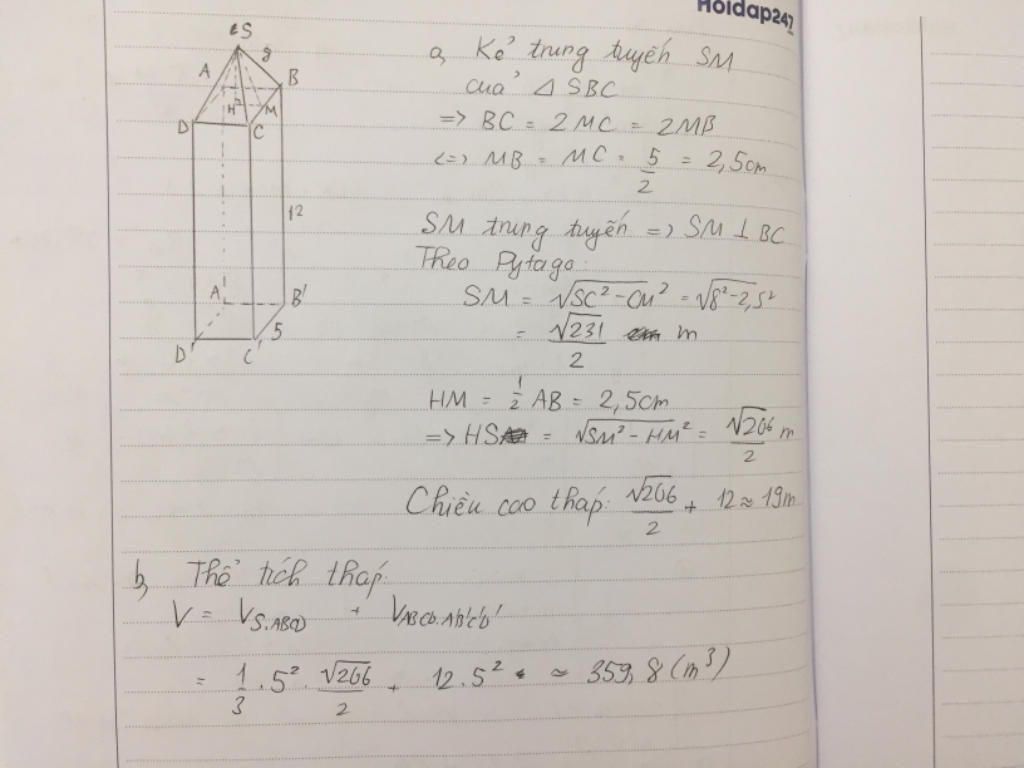 Hoidap247
S
8
A
B
H
M
D
C
12
A'
B'
5
D'
C'
a, Kẻ trung tuyến SM
của △ SBC
=> BC = 2MC = 2MB
<=> MB = MC = 5/2 = 2,5cm
SM trung tuyến => SM ⊥ BC
Theo Pytago:
SM = √SC² - CM² = √8² - 2,5²
= √231/2 m
HM = 1/2 AB = 2,5cm
=> HS = √SM² - HM² = √206/2 m
Chiều cao tháp: √206/2 + 12 ≈ 19m
b, Thể tích tháp:
V = VS.ABCD + VABCD.A'B'C'D'
= 1/3 . 5² . √206/2 + 12 . 5² ≈ 359,8 (m³)